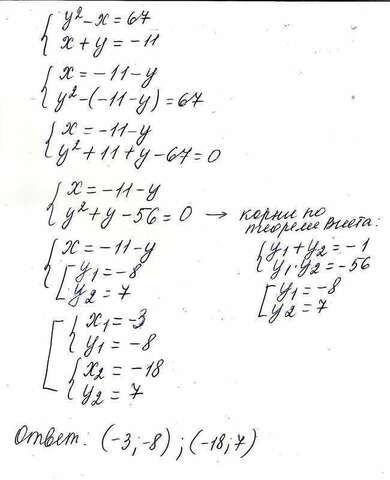 y² - x = 67
x + y = -11
x = -11 - y
y² - (-11 - y) = 67
x = -11 - y
y² + 11 + y - 67 = 0
x = -11 - y
y² + y - 56 = 0 → корни по
теореме Виета:
x = -11 - y
y₁ = -8
y₂ = 7
y₁ + y₂ = -1
y₁ · y₂ = -56
y₁ = -8
y₂ = 7
x₁ = -3
y₁ = -8
x₂ = -18
y₂ = 7
Ответ: (-3; -8) ; (-18; 7)